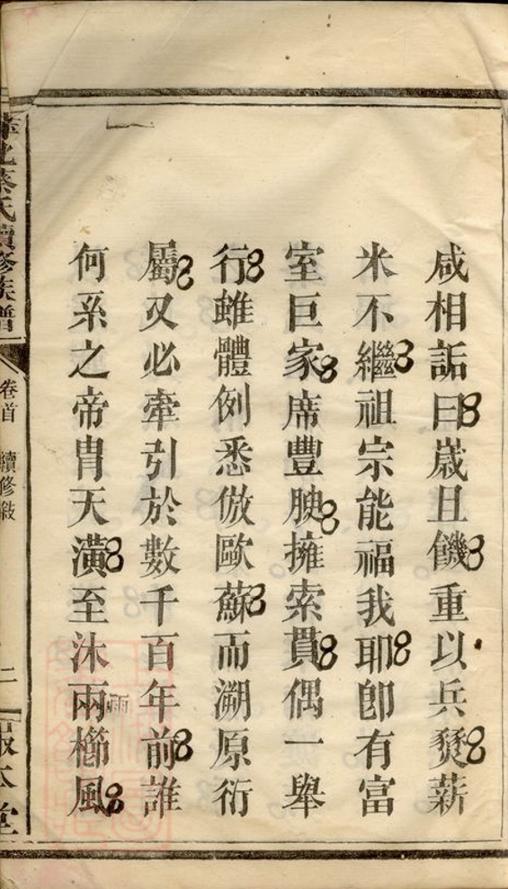 咸相詬曰歲丑饑重以兵燹薪
米不繼祖宗能福我耶卽有富
室巨家席豐腴擁索貫偶一舉
行雖體例悉倣歐蘇而溯原衍
屬又必牽引於數千百年前誰
何系之帝胄天潢至沐兩櫛風
雨
蔡氏續修族譜
卷首
續修敍
二
本堂